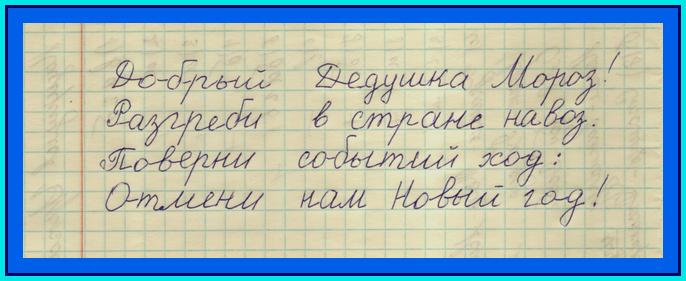 Добрый Дедушка Мороз!
Разгреби в стране навоз.
Поверни событий ход:
Отмени нам Новый год!